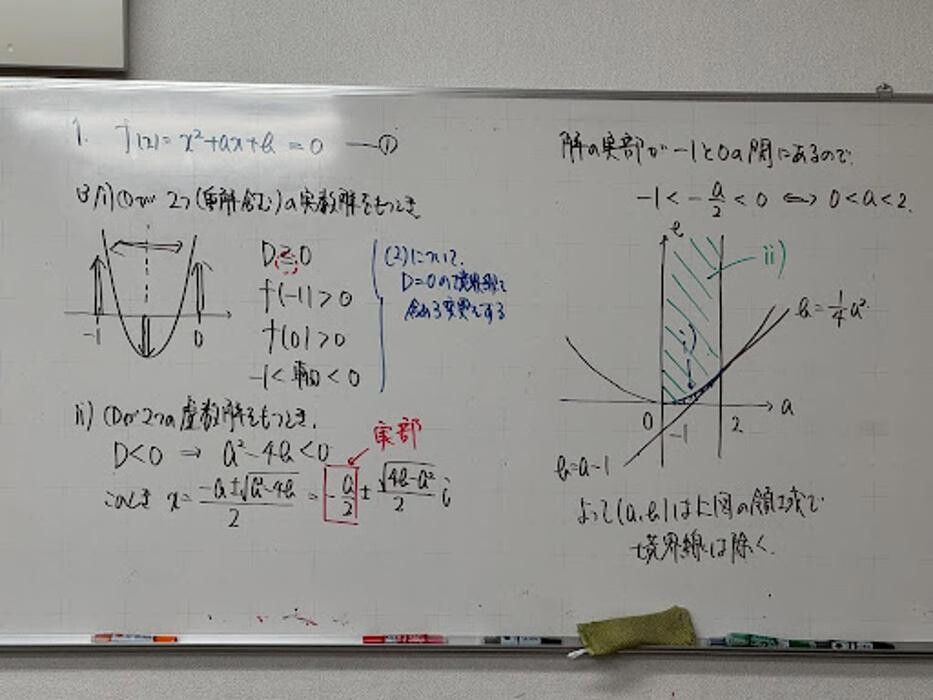 1. f(x) = x²+ax+b = 0 —①
(3) i) ①が2つ(重解含む)の実数解をもつとき
-1 0
D≧0
f(-1)>0
f(0)>0
-1<軸<0
(2)について.
D=0の境界線を
含める変更をする
ii) ①が2つの虚数解をもつとき.
D<0 ⇒ a²-4b<0
このとき x = (-a±√(a²-4b))/2 = -a/2 ± √(4b-a²)/2 i
実部
解の実部が -1と0の間にあるので.
-1 < -a/2 < 0 ⇔ 0<a<2.
b
ii)
b=¼a²
i)
0 -1 2 a
b=a-1
よって(a,b)は上図の領域で
境界線は除く.